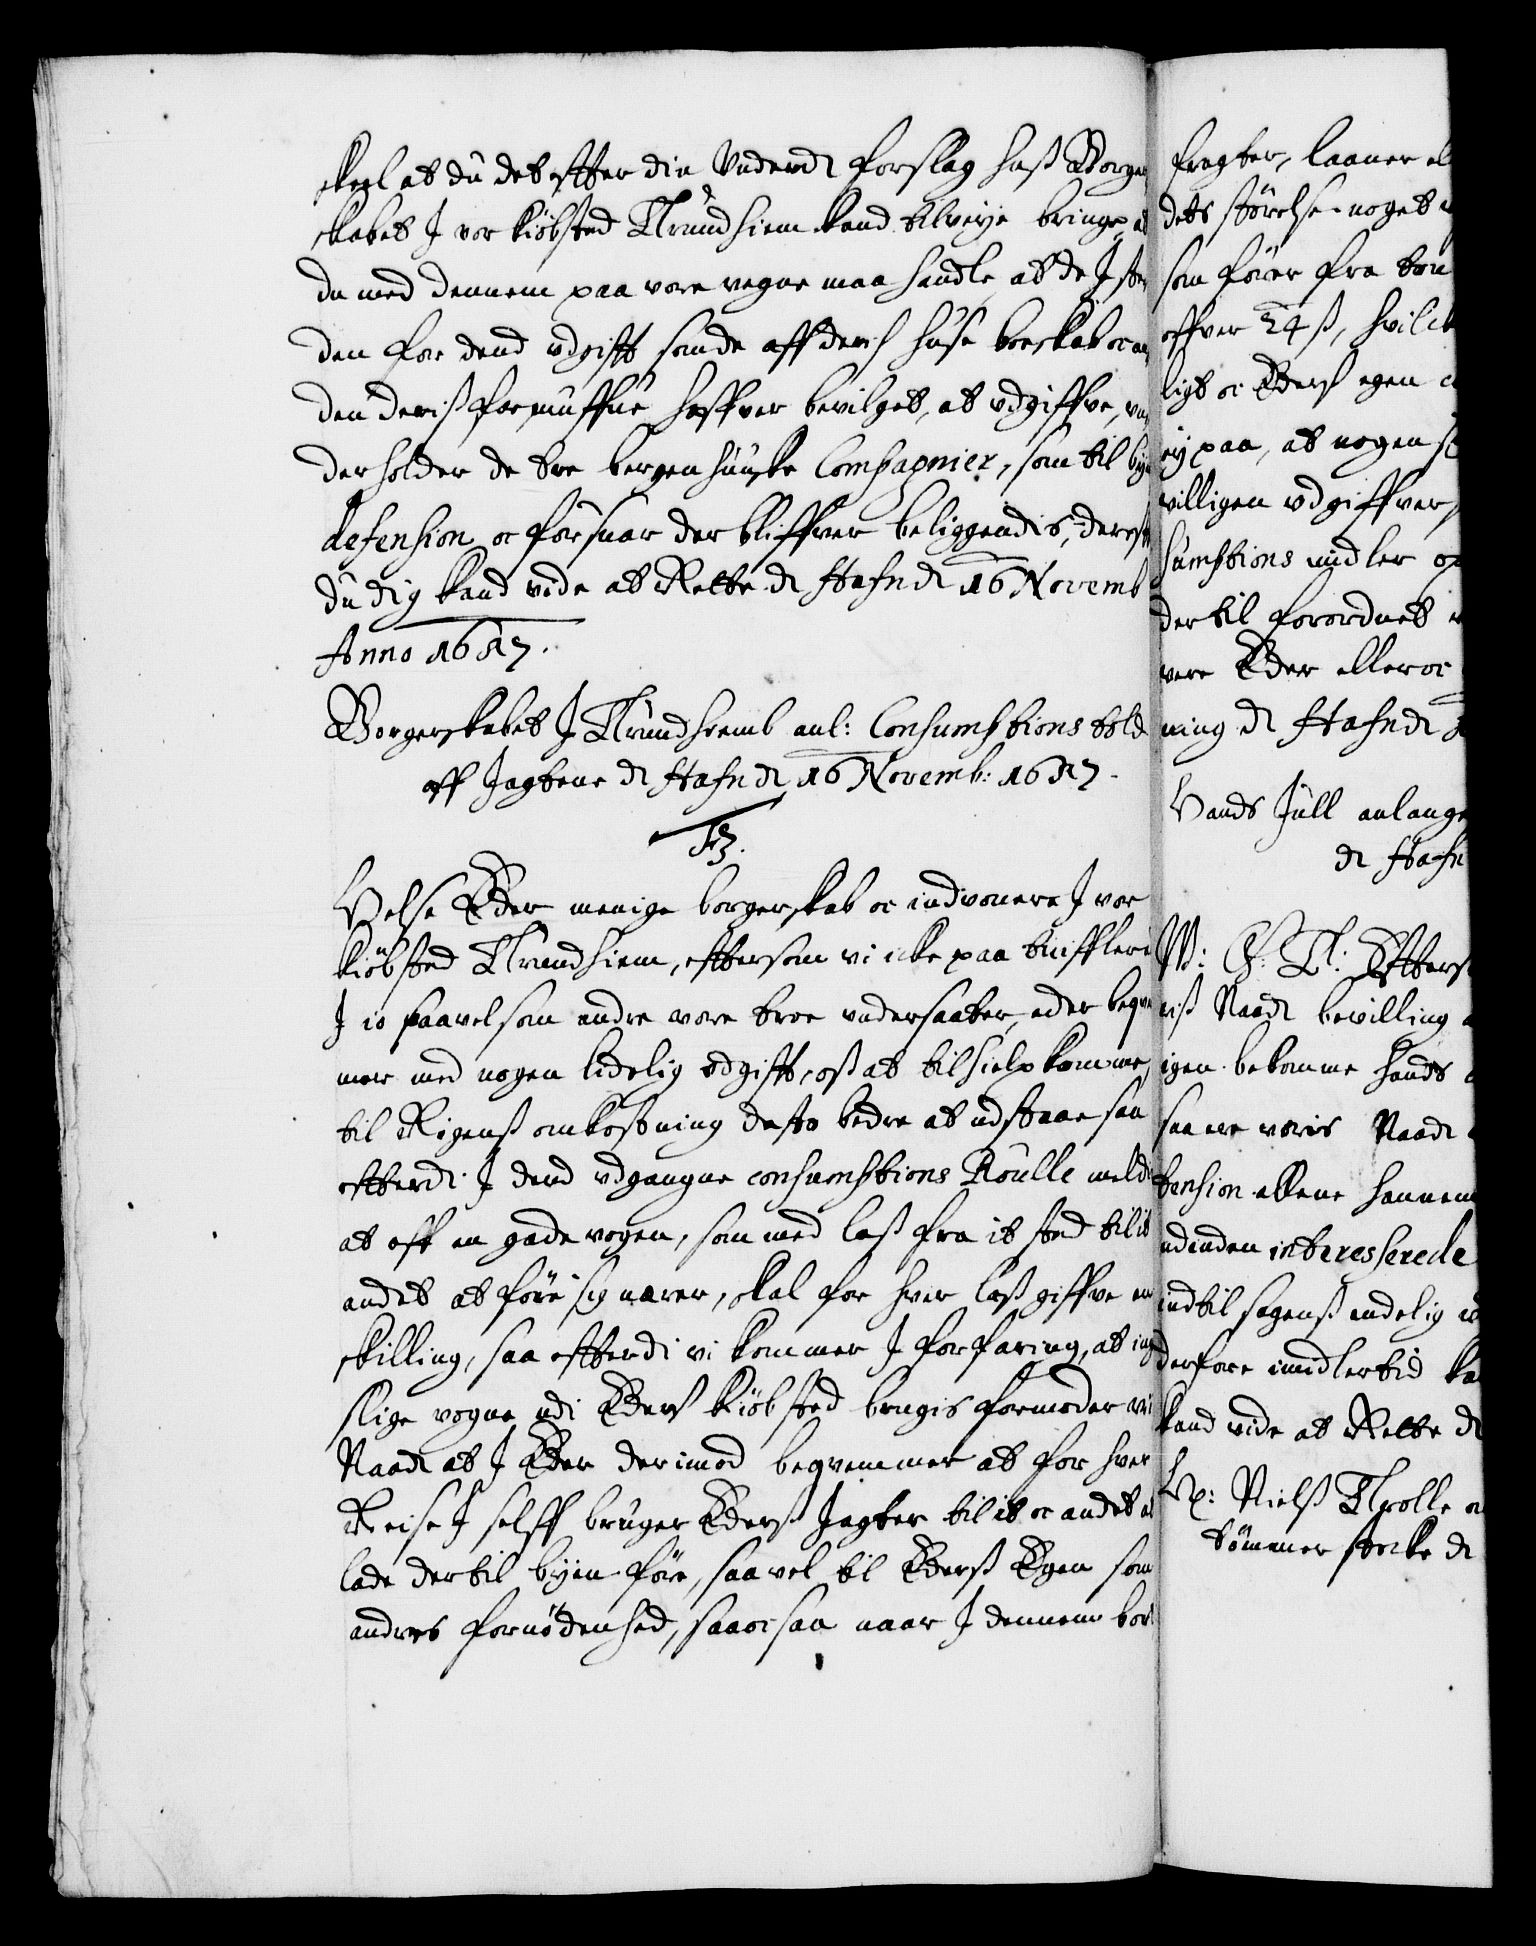 skeel at du det effter din Underd: forslag hoss Borger
skabet J vor kiöbsted Trundhiem kand tilveye bringe, at
du med dennem paa vore vegne maa handle, at de J ste
den for dend udgifft som de aff deris huse boeskab oc an
den deris formuffue haffver bevilget, at udgiffve, un
derholder de tre bergenhuuske Compagnier, som til byens
defension oc forsuar der bliffver beliggendis, dereffter
du dig kand vide at Rette. dt Hafn dt 16 Novemb
Anno 1657.
Borgerskabet J Trundhiemb anl: Consumptions told
aff Jagtene dt Hafn dt 16 Novemb: 1657.
F3.
Helse Eder menige borgerskab oc indvonere J vor
kiöbsted Trundhiem, effter som vi icke paa tuiffler
J io saavel som andre vore troe undersaatter, eder beqve
mer med nogen lidelig udgifft, oss at til hielp komme,
til Rigens omkostning desto bedre at udstaae saa
efftterdi J dend udgangne consumptions Roulle meldis
at aff en gade vogen, som med lass fra it sted til it
andet at före sig nærer, skal for hver lass giffve en
skilling, saa effterdi vi kommer J forfaring, at ing
slige vogne udi Eders kiöbsted brugis formoder vi
Naadt at J Eder derimod beqvemmer at for hver
Reise J selff bruger Eders Jagter til it oc andet at
lade der til byen före, saa vel til Eders Egen som
andres fornödenhed, saa oc saa naar J dennem bort
fragter, laaner el
dets störelse noget
som förer fra ton
offver 24 ss, hvilcket
ligt oc Eders egen
ey paa, at nogen s
villigen udgiffver,
sumptions midler op
der til forordnet
vere Eder eller oc
ning dt Hafn dt
Hands Jull anlang
dt Hafn
W: G: T: Effters
riss Naadt bevilling
igen bekomme hands
saa ere voris Naadt
tension allene hannem
udinden interesserede
indtil sagens endelig
derfore imidlertid ka
kand vide at Rette dt
H: Niels Trolle
tömmer stocke dt